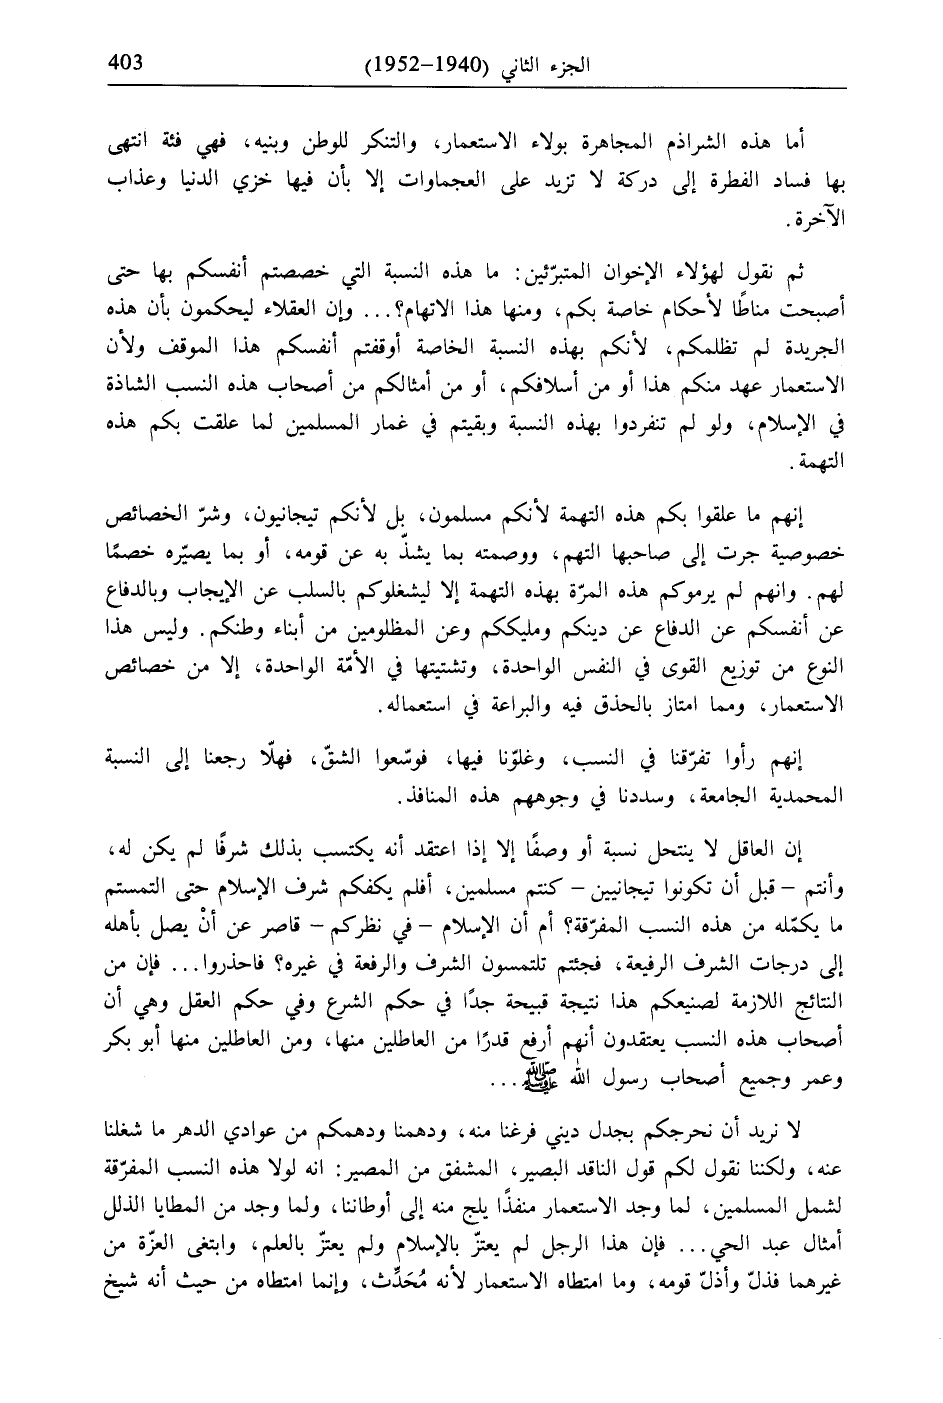 الجزء الثاني (1940–1952) 403
أما هذه الشراذم المجاهرة بولاء الاستعمار، والتنكر للوطن وبنيه، فهي فئة انتهى
بها فساد الفطرة إلى دركة لا تزيد على العجماوات إلا بأن فيها خزي الدنيا وعذاب
الآخرة.
ثم نقول لهؤلاء الإخوان المتبرّئين: ما هذه النسبة التي خصصتم أنفسكم بها حتى
أصبحت مناطًا لأحكام خاصة بكم، ومنها هذا الاتهام؟... وإن العقلاء ليحكمون بأن هذه
الجريدة لم تظلمكم، لأنكم بهذه النسبة الخاصة أوقفتم أنفسكم هذا الموقف ولأن
الاستعمار عهد منكم هذا أو من أسلافكم، أو من أمثالكم من أصحاب هذه النسب الشاذة
في الإسلام، ولو لم تنفردوا بهذه النسبة وبقيتم في غمار المسلمين لما علقت بكم هذه
التهمة.
إنهم ما علقوا بكم هذه التهمة لأنكم مسلمون، بل لأنكم تيجانيون، وشرّ الخصائص
خصوصية جرت إلى صاحبها التهم، ووصمته بما يشذّ به عن قومه، أو بما يصيّره خصمًا
لهم. وانهم لم يرموكم هذه المرّة بهذه التهمة إلا ليشغلوكم بالسلب عن الإيجاب وبالدفاع
عن أنفسكم عن الدفاع عن دينكم ومليككم وعن المظلومين من أبناء وطنكم. وليس هذا
النوع من توزيع القوى في النفس الواحدة، وتشتيتها في الأمّة الواحدة، إلا من خصائص
الاستعمار، ومما امتاز بالحذق فيه والبراعة في استعماله.
إنهم رأوا تفرّقنا في النسب، وغلوّنا فيها، فوسّعوا الشقّ، فهلّا رجعنا إلى النسبة
المحمدية الجامعة، وسددنا في وجوههم هذه المنافذ.
إن العاقل لا ينتحل نسبة أو وصفًا إلا إذا اعتقد أنه يكتسب بذلك شرفًا لم يكن له،
وأنتم – قبل أن تكونوا تيجانيين – كنتم مسلمين، أفلم يكفكم شرف الإسلام حتى التمستم
ما يكمّله من هذه النسب المفرّقة؟ أم أن الإسلام – في نظركم – قاصر عن أنْ يصل بأهله
إلى درجات الشرف الرفيعة، فجئتم تلتمسون الشرف والرفعة في غيره؟ فاحذروا... فإن من
النتائج اللازمة لصنيعكم هذا نتيجة قبيحة جدًا في حكم الشرع وفي حكم العقل وهي أن
أصحاب هذه النسب يعتقدون أنهم أرفع قدرًا من العاطلين منها، ومن العاطلين منها أبو بكر
وعمر وجميع أصحاب رسول الله ﷺ...
لا نريد أن نحرجكم بجدل ديني فرغنا منه، ودهمنا ودهمكم من عوادي الدهر ما شغلنا
عنه، ولكننا نقول لكم قول الناقد البصير، المشفق من المصير: انه لولا هذه النسب المفرّقة
لشمل المسلمين، لما وجد الاستعمار منفذًا يلج منه إلى أوطاننا، ولما وجد من المطايا الذلل
أمثال عبد الحي... فإن هذا الرجل لم يعتزّ بالإسلام ولم يعتزّ بالعلم، وابتغى العزّة من
غيرهما فذلّ وأذلّ قومه، وما امتطاه الاستعمار لأنه مُحَدِّث، وإنما امتطاه من حيث أنه شيخ